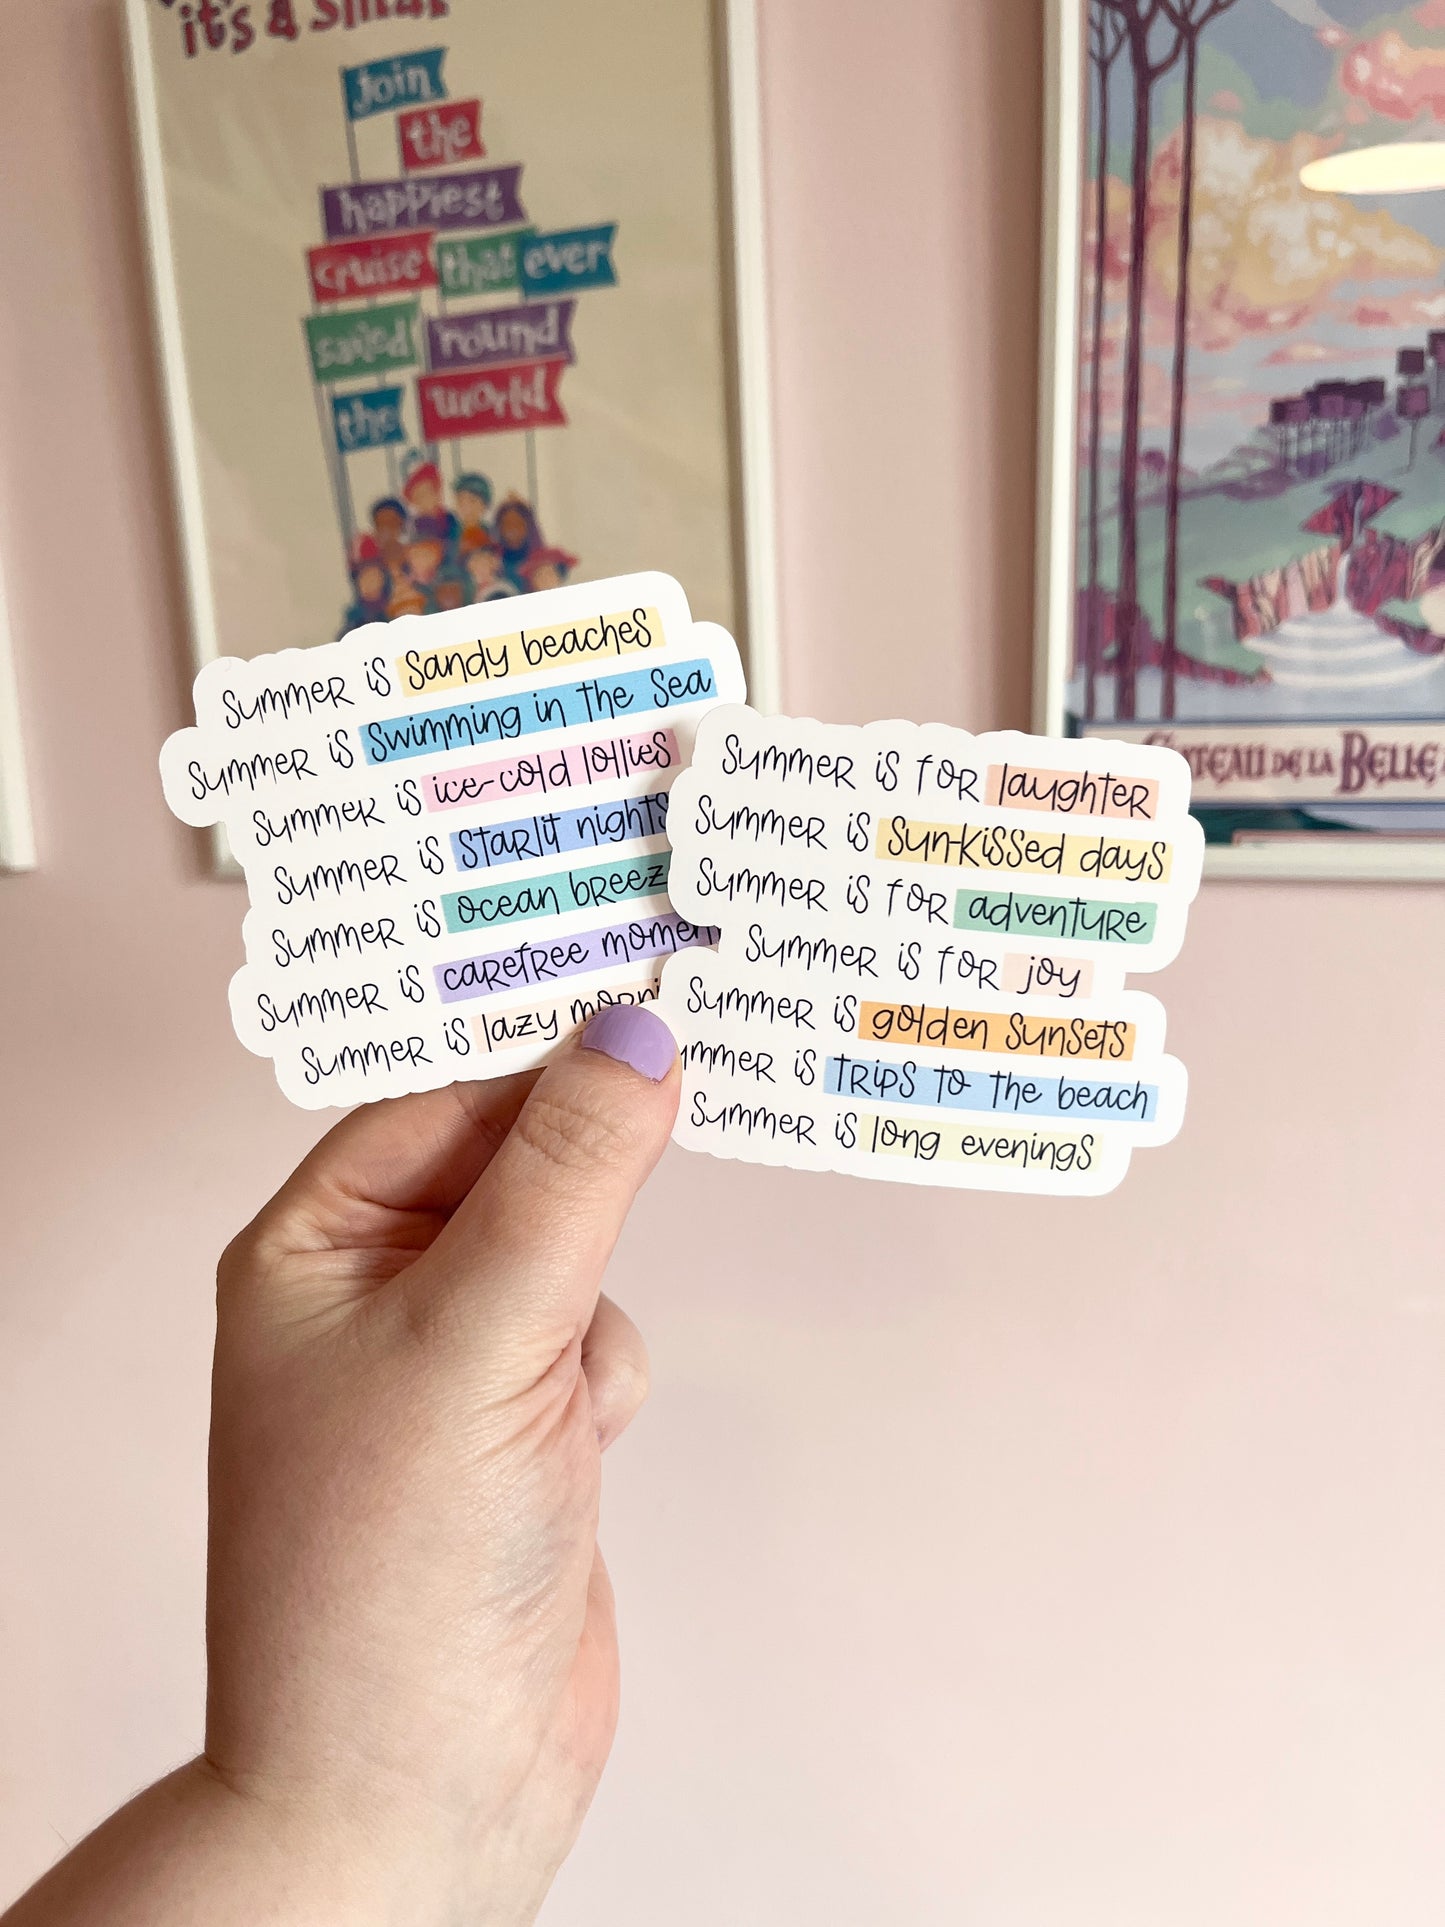 it's a small
join
the
happiest
cruise that ever
sailed 'round
the world
Summer is Sandy beaches
Summer is Swimming in the Sea
Summer is ice-cold lollies
Summer is Starlit nights
Summer is ocean breez
Summer is carefree momen
Summer is lazy morni
Summer is for laughter
Summer is Sun-kissed days
Summer is for adventure
Summer is for joy
Summer is golden Sunsets
ummer is trips to the beach
Summer is long evenings
ATEAU DE LA BELLE